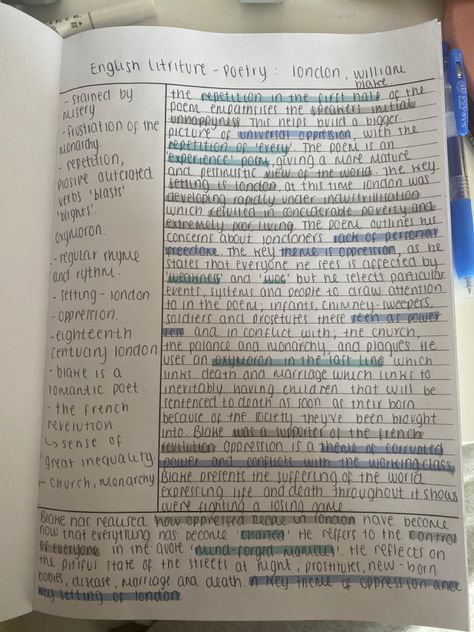 English Litriture - Poetry : london, william
blake
- stained by
misery
- frustration of the
monarchy.
- repetition,
plosive aliterated
verbs 'blasts'
'blights'.
oxymoron.
- regular rhyme
and rythm.
- setting - london
- oppression.
- eighteenth
century london
- blake is a
romantic poet.
- the french
revelution.
↳ sense of
great inequality
- church, monarchy
the repetition in the first half of the
poem emphasises the speakers initial
unhappyness This helps build a bigger
picture of universal oppression, with the
repetition of 'every'. The poem is an
'experience poem', giving a more mature
and pessimistic view of the world. The key
setting is london, at this time london was
developing rapidly under industrilisation
which resulted in considerable poverty and
extremely poor living. The poem outlines his
concerns about londoners lack of personal
freedome. The key theme is oppression, as he
states that everyone he sees is affected by
'weakness' and 'woe' but he selects particular
events, systems and people to draw attention
to in the poem; infants, chimney-sweepers,
soldiers and prosetutes these seen as power
and in conflict with; the church,
the palance and monarchy, and plagues. He
uses an oxymoron in the last line which
links death and marriage which links to
inevitably having children that will be
sentenced to death as soon as their born
because of the society they've been brought
into. Blake was a supporter of the french
revilution oppression is a theme of corrupted
power and conflicts with the working class,
Blake presents the suffering of the world
expressing life and death throughout it shows
were fighting a losing game.
Blake has realised how oppressed people in london have become
now that everything has become 'chained'. He reffers to the control
of everyone in the quote 'mind-forged manicles'. He reflects on
the pitiful state of the streets at night; prostitutes, new-born
babies, disease, marriage and death. A key theme of oppression and
key setting of london.